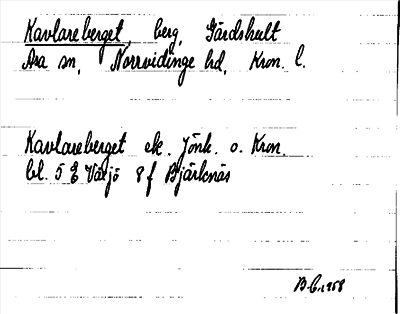 Kavlareberget, berg, Gårdshult
Asa sn, Norrvidinge hd, Kron. l.
Kavlareberget ek. Jönk. o. Kron.
bl. 5 E Växjö 8 f Bjärknäs
B.C. 1958